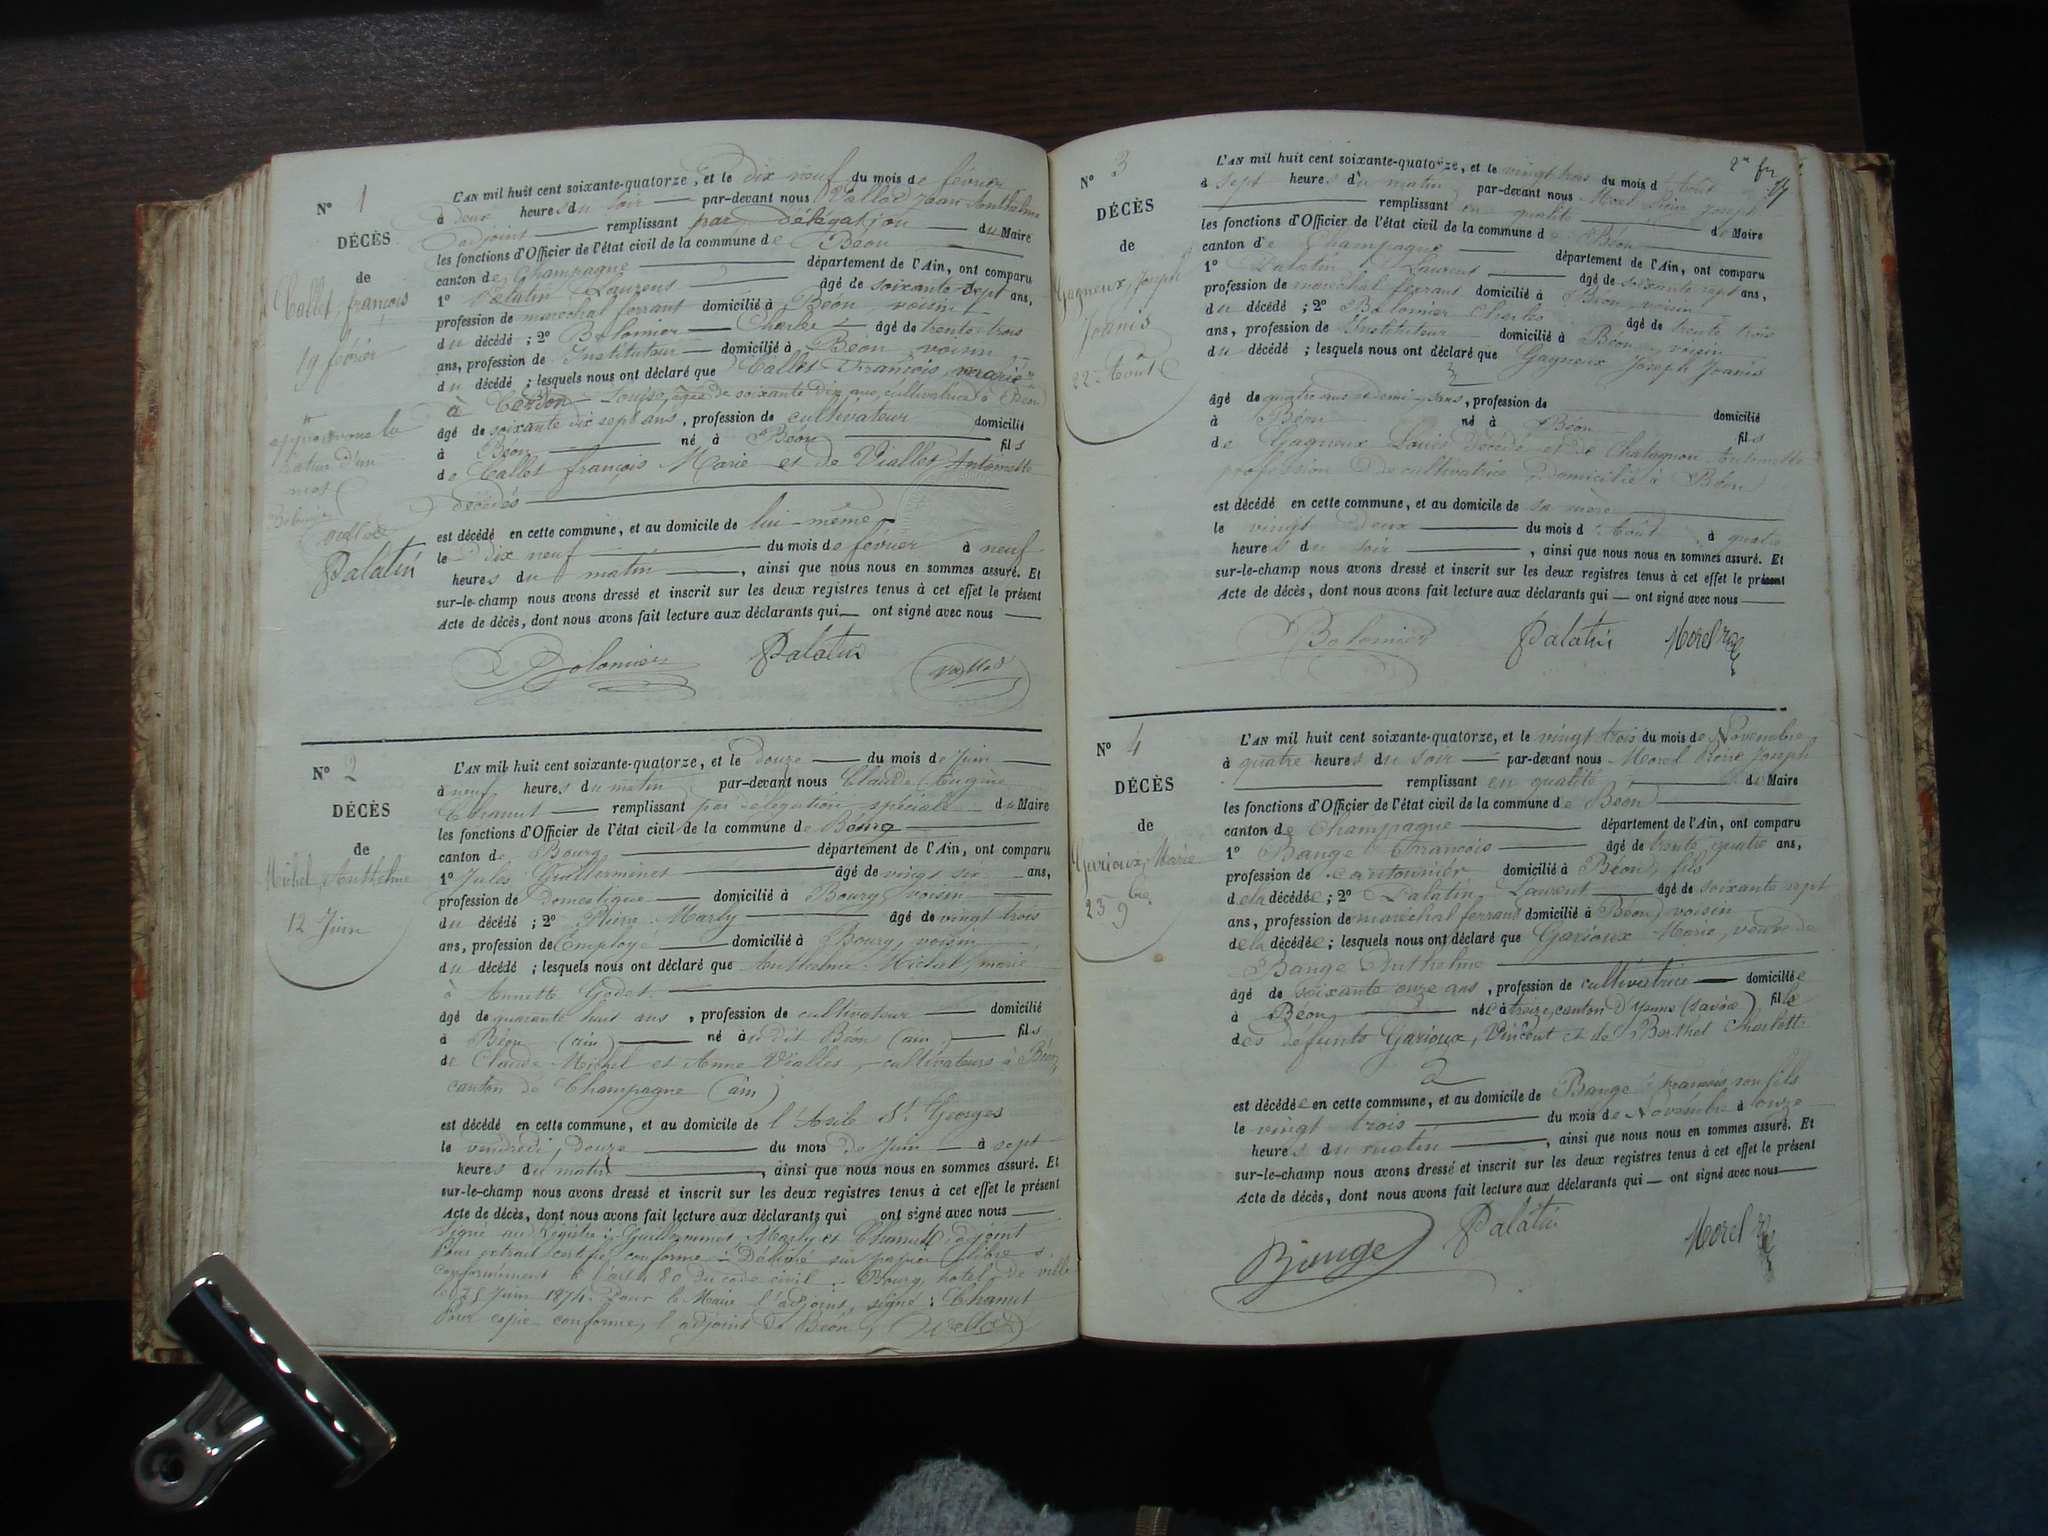 N° 1
DÉCÈS
de
Callet, françois
19 février
approuvons la
rature d'un
mot
Bolomier
Vallod
Palatin
L'AN mil huit cent soixante-quatorze, et le dix neuf du mois de février
à deux heures du soir par-devant nous Vallod Jean Anthelme
adjoint remplissant par délégation du Maire
les fonctions d'Officier de l'état civil de la commune de Béon
canton de Champagne département de l'Ain, ont comparu
1° Palatin Laurent âgé de soixante-sept ans,
profession de maréchal ferrant domicilié à Béon, voisin
du décédé ; 2° Bolomier Charles âgé de trente-trois
ans, profession de Instituteur domicilié à Béon voisin
du décédé ; lesquels nous ont déclaré que Callet François, marié
à Cerdon Louise, âgée de soixante dix ans, cultivatrice à Béon
âgé de soixante dix sept ans, profession de cultivateur domicilié
à Béon né à Béon fils
de Callet françois Marie et de Viallet Antoinette
décédés
est décédé en cette commune, et au domicile de lui-même
le dix neuf du mois de février à neuf
heures du matin, ainsi que nous nous en sommes assuré. Et
sur-le-champ nous avons dressé et inscrit sur les deux registres tenus à cet effet le présent
Acte de décès, dont nous avons fait lecture aux déclarants qui ont signé avec nous
Bolomier Palatin Vallod
N° 2
DÉCÈS
de
Michel, Anthelme
12 Juin
L'AN mil huit cent soixante-quatorze, et le douze du mois de Juin
à neuf heures du matin par-devant nous Claude Eugène
Chanut remplissant par délégation spéciale du Maire
les fonctions d'Officier de l'état civil de la commune de Bourg
canton de Bourg département de l'Ain, ont comparu
1° Jules Guillerminet âgé de vingt six ans,
profession de Domestique domicilié à Bourg voisin
du décédé ; 2° Marly âgé de vingt trois
ans, profession de Employé domicilié à Bourg, voisin
du décédé ; lesquels nous ont déclaré que Anthelme Michel, marié
à Annette Godet
âgé de quarante huit ans, profession de cultivateur domicilié
à Béon (ain) né à dit Béon (ain) fils
de Claude Michel et Anne Vialles, cultivateurs à Béon,
canton de Champagne (ain)
est décédé en cette commune, et au domicile de l'Asile St Georges
le vendredi, douze du mois de Juin à sept
heures du matin, ainsi que nous nous en sommes assuré. Et
sur-le-champ nous avons dressé et inscrit sur les deux registres tenus à cet effet le présent
Acte de décès, dont nous avons fait lecture aux déclarants qui ont signé avec nous
Signé au Registre : Guillerminet Marly et Chanut adjoint
Pour extrait certifié conforme : Délivré sur papier libre
conformément à l'art. 80 du code civil. Bourg, hôtel de ville
le Juin 1874. Pour le Maire l'adjoint, signé : Chanut
Pour copie conforme, l'adjoint de Béon,
N° 3
DÉCÈS
de
Gagneux, Joseph
Joanis
22 Août
L'AN mil huit cent soixante-quatorze, et le vingt trois du mois d'Août
à sept heures du matin par-devant nous Morel Pierre Joseph
remplissant en qualité de Maire
les fonctions d'Officier de l'état civil de la commune de Béon
canton de Champagne département de l'Ain, ont comparu
1° Palatin Laurent âgé de soixante sept ans,
profession de maréchal ferrant domicilié à Béon voisin
du décédé ; 2° Bolomier Charles âgé de trente trois
ans, profession de Instituteur domicilié à Béon, voisin
du décédé ; lesquels nous ont déclaré que Gagneux Joseph Joanis
âgé de quatre ans et demi ans, profession de domicilié
à Béon né à Béon fils
de Gagneux Louis décédé et de Chatagnon Antoinette
profession de cultivatrice domiciliée à Béon
est décédé en cette commune, et au domicile de sa mère
le vingt deux du mois d'Août à quatre
heures du soir, ainsi que nous nous en sommes assuré. Et
sur-le-champ nous avons dressé et inscrit sur les deux registres tenus à cet effet le présent
Acte de décès, dont nous avons fait lecture aux déclarants qui ont signé avec nous
Bolomier Palatin Morel
N° 4
DÉCÈS
de
Garioux, Marie
23 9bre
L'AN mil huit cent soixante-quatorze, et le vingt trois du mois de Novembre
à quatre heures du soir par-devant nous Morel Pierre Joseph
remplissant en qualité de Maire
les fonctions d'Officier de l'état civil de la commune de Béon
canton de Champagne département de l'Ain, ont comparu
1° Bange François âgé de trente quatre ans,
profession de Cantonnier domicilié à Béon, fils
de la décédée ; 2° Palatin, Laurent âgé de soixante sept
ans, profession de maréchal ferrant domicilié à Béon voisin
de la décédée ; lesquels nous ont déclaré que Garioux Marie, veuve de
Bange Anthelme
âgé de soixante onze ans, profession de cultivatrice domiciliée
à Béon née à canton d'Yenne (Savoie) fille
des défunts Garioux, Vincent et de Berthet Charlotte
est décédée en cette commune, et au domicile de Bange françois son fils
le vingt trois du mois de Novembre à onze
heures du matin, ainsi que nous nous en sommes assuré. Et
sur-le-champ nous avons dressé et inscrit sur les deux registres tenus à cet effet le présent
Acte de décès, dont nous avons fait lecture aux déclarants qui ont signé avec nous
Bange Palatin Morel